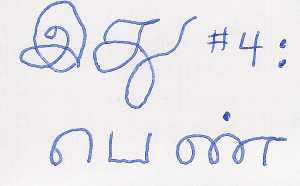 இது #4:
பெண்